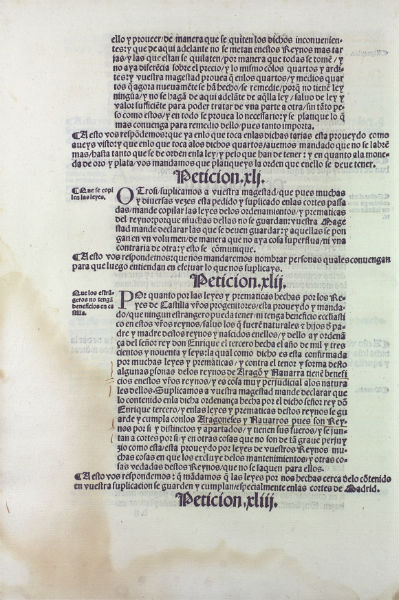 ello y proueer/de manera que se quiten los dichos inconuenien-
tes: y que de aqui adelante no se metan enestos Reynos mas tar
jas/y las que estan se quilaten/por manera que todas se tomē/y
no aya diferēcia sobre el precio/y lo mismo cōlos quartos y ardi
tes: y vuestra magestad prouea q̄ enlos quartos/y medios quar
tos q̄ agora nueuamēte se hā hecho/se remedie/porq̄ no tienē ley
ningūa/y no se hagā de aqui adelāte de aq̄lla ley/saluo de ley y
valor sufficiēte para poder tratar de vna parte a otra/sin tāto pe-
so como estos/y en todo se prouea lo necessario: y se platique lo q̄
mas conuenga para remedio dello pues tanto importa.
¶ A esto vos respōdemos: que ya enlo que toca enlas dichas tarjas esta proueydo como
aueys visto: y en quanto que toca alos dichos quartos/auemos mandado que no se labrē
mas/hasta tanto que se de orden en la ley/y peso que han de tener: y en quanto ala mone-
da de oro y plata/vos mandamos que platiqueys la orden que enello se deue tener.
Peticion.xlj.
¶ Que se copi
len las leyes.
OTrosi suplicamos a vuestra magestad/que pues muchas
y diuersas vezes esta pedido y suplicado enlas cortes passa
das/mande copilar las leyes delos ordenamientos/y prematicas
del reyno: porque muchas dellas no se guardan: vuestra Mage
stad mande declarar las que se deuen guardar: y aquellas se pon
gan en vn volumen/de manera que no aya cosa superflua/ni vna
contraria de otra: y esto se comunique.
¶ A esto vos respondemos: que nos mandaremos nombrar personas quales conuengan
para que luego entiendan en efetuar lo que nos suplicays.
Peticion.xlij.
Que los estrā
geros no tengā
beneficios en ca
stilla.
POr quanto por las leyes y prematicas hechas por los Re-
yes de Castilla vr̄os progenitores/esta proueydo y manda-
do/que ningun estrangero pueda tener/ni tenga beneficio ecclesiasti
co en estos vr̄os reynos/saluo los q̄ fuerē naturales: e hijos d̄ pa
dre y madre destos reynos y nascidos enellos/y dello ay ordenā
ça del señor rey don Enrique el tercero hecha el año de mil y tres
cientos y nouenta y seys: la qual como dicho es esta confirmada
por muchas leyes y prematicas: y contra el tenor y forma desto
algunas psonas delos reynos de Aragō y Nauarra tienē benefi
cios enestos vr̄os reynos/y es cosa muy perjudicial alos natura
les dellos. Suplicamos a vuestra magestad mande declarar que
lo contenido enla dicha ordenança hecha por el dicho señor rey dō
Enrique tercero/y enlas leyes y prematicas destos reynos se gu
arde y cumpla conlos Aragoneses y Nauarros pues son Rey-
nos por si y distinctos y apartados/y tienen sus fueros/y se jun-
tan a cortes por si y en otras cosas que no son de tā graue perjuy
zio como esta/esta proueydo por leyes de vuestros Reynos mu-
chas cosas en que los excluye delos mantenimientos/y otras co-
sas vedadas destos Reynos/que no se saquen para ellos.
¶ A esto vos respondemos: q̄ mādamos q̄ las leyes por nos hechas cerca delo cōtenido
en vuestra suplicacion se guarden y cumplan/especialmente enlas cortes de Madrid.
Peticion.xliij.